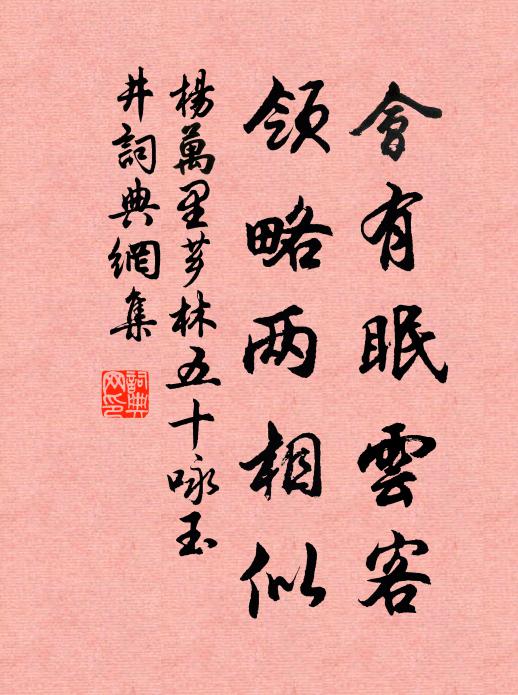 會有眠雲客
領略两相似
楊萬里芗林五十咏玉
井詞典網集
詞典
网印